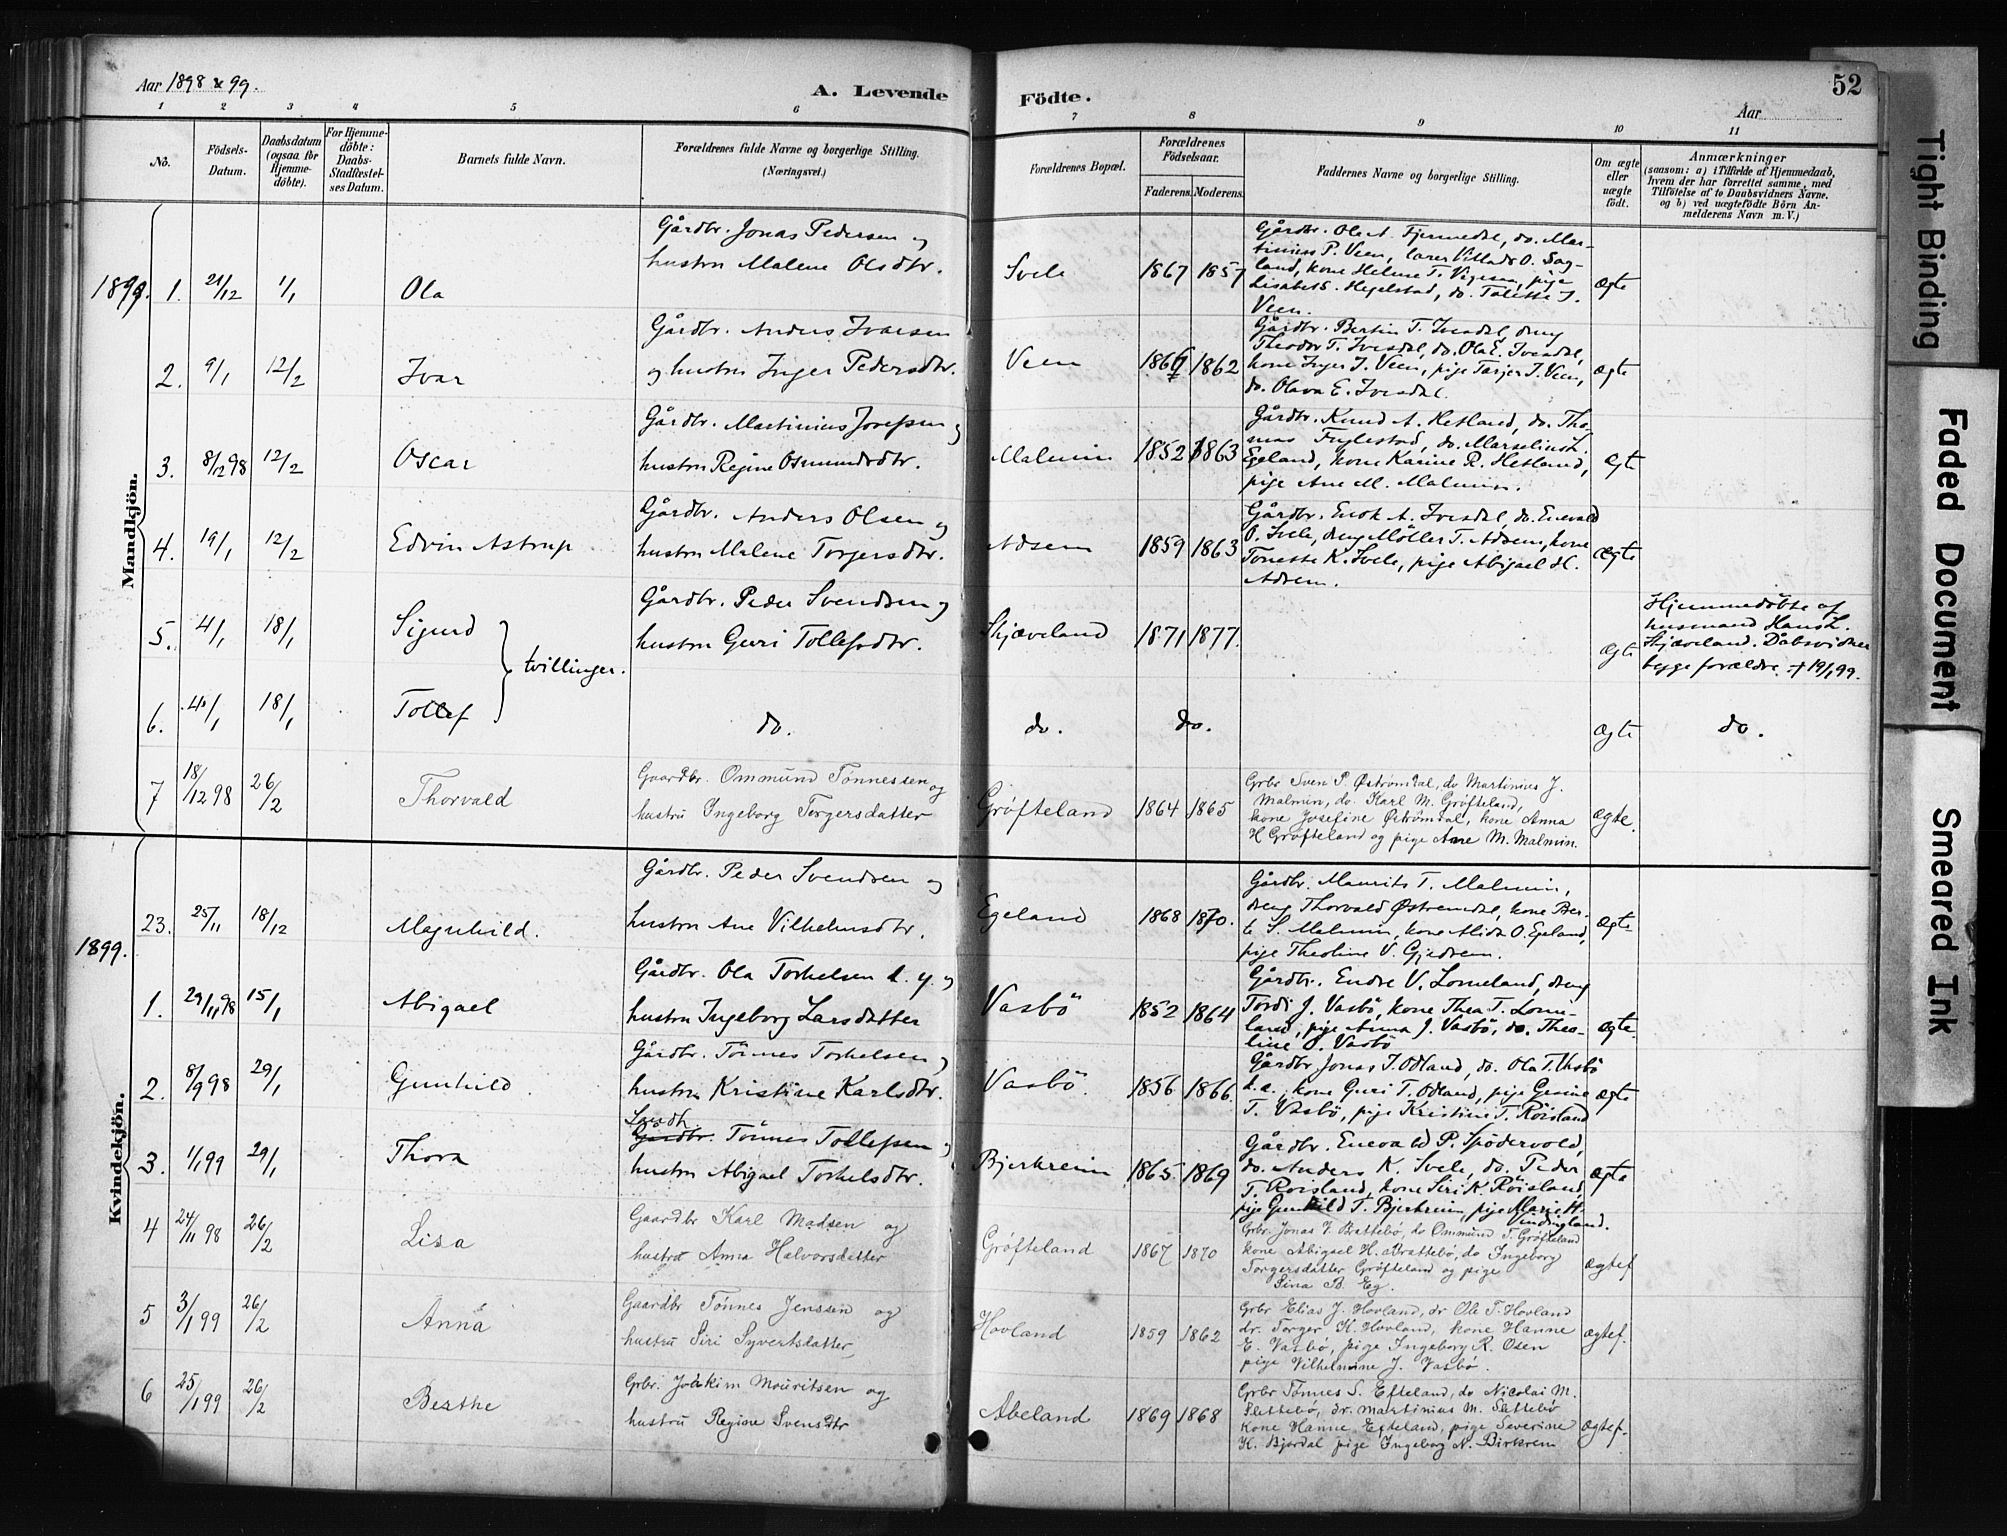 Aar 1898 & 99.
A. Levende Födte.
Aar
52
1 2 3 4 5 6 7 8 9 10 11
No.
Födsels-Datum.
Daabsdatum (ogsaa for Hjemme-döbte).
For Hjemme-döbte: Daabs-Stadfæstel-ses Datum.
Barnets fulde Navn.
Forældrenes fulde Navne og borgerlige Stilling. (Næringsvei.)
Forældrenes Bopæl.
Forældrenes Födselsaar.
Faderens. Moderens.
Faddernes Navne og borgerlige Stilling.
Om ægte eller uægte födt.
Anmærkninger
(saasom: a) i Tilfælde af Hjemmedaab, hvem der har forrettet samme, med Tilföielse af to Daabsvidners Navne. og b) ved uægtefödte Börn An-melderens Navn m. V.)
Mandkjön.
1899. 1. 21/12 1/1 Ola
Gårdbr. Jonas Pedersen og
hustru Malene Olsdtr.
Svele 1867 1857
Gårdbr. Ole A. Fjermedal, do. Mar-
tinius P. Veen, lærer Villads O. Sag-
land, kone Helene T. Vigesa, pige
Lisabet S. Hegelstad, do. Talette J.
Veen.
ægte
2. 9/1 12/2 Ivar
Gårdbr. Anders Ivarsen
og hustru Inger Pedersdtr.
Veen 1867 1862
Gårdbr. Bertin T. Ivesdal, dreng
Theodor T. Ivesdal, do. Ola E. Ivesdal,
kone Inger J. Veen, pige Tarjer J. Veen,
do. Olava E. Ivesdal.
ægte
3. 8/12 98 12/2 Oscar
Gårdbr. Martinius Josefsen og
hustru Regine Osmundsdtr.
Malmin 1852 1863
Gårdbr. Knud A. Hetland, do. Tho-
mas Fuglestad, do. Marselius L.
Egeland, kone Karine R. Hetland,
pige Ane M. Malmin.
ægte
4. 19/1 12/2 Edvin Astrup
Gårdbr. Anders Olsen og
hustru Malene Torgersdtr.
Adsem 1859 1863
Gårdbr. Enok A. Ivesdal, do. Enevald
O. Svele, dreng Möller T. Adsem, kone
Tonette K. Svele, pige Abigael H.
Adsem.
ægte
5. 4/1 18/1 Sigurd
tvillinger.
Gårdbr. Peder Svendsen og
hustru Guri Tollefsdtr.
Skjæveland 1871 1877.
ægte
Hjemmedöbte af
husmand Hans L.
Skjæveland. Dåbsvidner
begge forældre. + 19/1 99.
6. 4/1 18/1 Tollef
do. do. do. ægte do.
7 18/12 98 26/2 Thorvald
Gaardbr. Ommund Tønnessen og
hustru Ingeborg Torgersdatter
Grøfteland 1864 1865
Grbr Sven P. Østrømdal, do Martinius J.
Malmin, do. Karl M. Grøfteland,
kone Josefine Østrømdal, kone Anna
H Grøfteland og pige Ane M. Malmin.
ægte.
Kvindekjön.
23. 25/11 18/12 Magnhild.
Gårdbr. Peder Svendsen og
hustru Ane Vilhelmsdtr.
Egeland 1868 1870.
Gårdbr. Maurits T. Malmin,
dreng Thorvald Østremdal, kone Ber-
te S. Malmin, kone Alida O. Egeland,
pige Theoline V. Gjedrem.
ægte
1899.
1. 29/11 98 15/1 Abigael
Gårdbr. Ola Torkelsen d. y. og
hustru Ingeborg Larsdatter
Vasbö 1852 1864
Gårdbr. Endre V. Lomeland, dreng
Tordi J. Vasbö, kone Thea T. Lome-
land, pige Anna J. Vasbö, do. Theo-
line O. Vasbö
ægte.
2. 8/9 98 29/1 Gunhild.
Gårdbr. Tönnes Torkelsen og
hustru Kristine Karlsdtr.
Vasbö 1856 1866.
Gårdbr Jonas T. Odland, do. Ola T. Vasbö
d. æ., kone Guri T. Odland, pige Gesine
T. Vasbö, pige Kristine T. Röisland
ægte
3. 1/1 99 29/1 Thora
Gårdbr. Tönnes Tollefsen og
hustru Abigael Torkelsdtr.
Bjerkreim 1865 1869
Gårdbr. Enevald P. Spödervold,
do. Anders K. Svele, do. Peder
T. Röisland, kone Siri K. Röisland,
pige Gunhild T. Bjerkreim, pige Marie H.
Vindingland.
ægte
4 24/11 98 26/2 Lisa
Gaardbr Karl Madsen og
hustru Anna Halvorsdatter
Grøfteland 1867 1870
Grbr. Jonas V. Brattebö, do Ommund T. Grøfteland
kone Abigael H. Brattebö, do Ingeborg
Torgersdatter Grøfteland og pige
Sina B. Eg.
ægtef
5 3/1 99 26/2 Anna
Gaardbr Tönnes Jenssen og
hustru Siri Syvertsdatter,
Hovland 1859 1862
Grbr Elias J. Hovland, dr Ole T. Hovland
dr. Torger K. Hovland, kone Hanne
E. Vasbö, pige Ingeborg R. Osen
pige Vilhelmine J. Vasbö.
ægtef.
6 25/1 99 26/2 Berthe
Grbr. Joakim Mouritsen og
hustru Regine Svensdtr
Abeland 1869 1868
Grbr Tönnes S. Efteland, do Nicolai M.
Slettebö, dr. Martinius M. Slettebö
kone Hanne Efteland, pige Severine
H. Bjordal pige Ingeborg N. Birkrem
ægtef.
Tight Binding
Faded Document
Smeared Ink